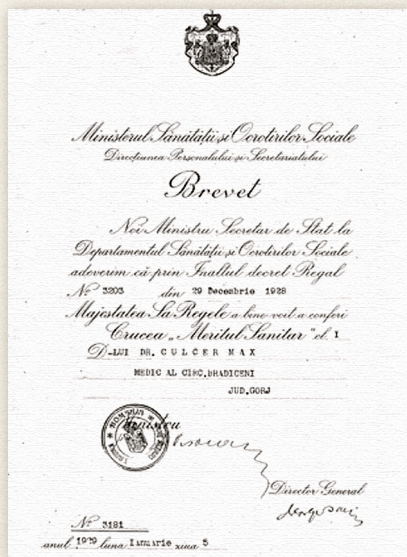 Ministerul Sănătății și Ocrotirilor Sociale
Direcțiunea Personalului și Secretariatului
Brevet
Noi Ministru Secretar de Stat la
Departamentul Sănătății și Ocrotirilor Sociale
adeverim că prin Înaltul decret Regal
No 3203 din 29 Decembrie 1928
Majestatea Sa Regele a bine voit a conferi
Crucea „Meritul Sanitar" cl. I
D-LUI DR. CULCER MAX
MEDIC AL CIRC. BRADICENI
JUD. GORJ
Ministru
Director General
No 3181
anul 1929 luna Ianuarie ziua 5